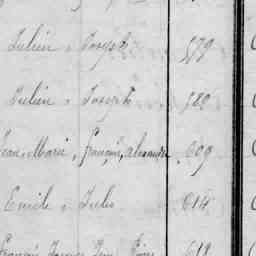 Julien, Joseph 579
Julien, Joseph 580
Jean, Marie, François, Alexandre 609
Emile, Jules 614
François